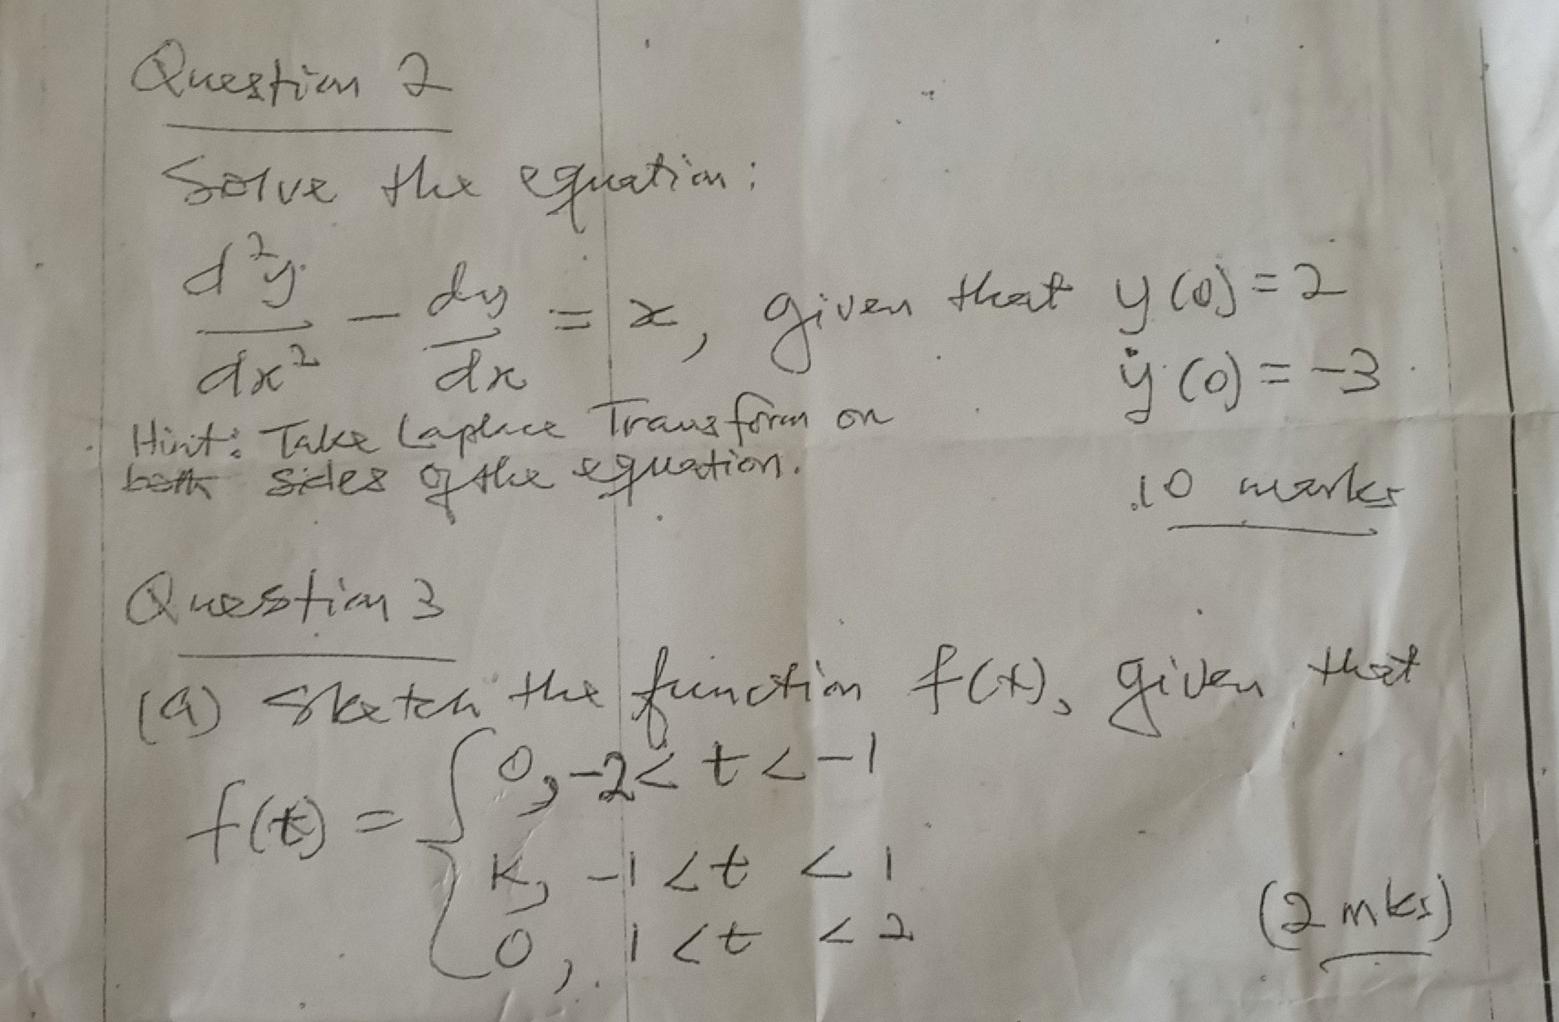 Question 2
Solve the equation:
d²y/dx² - dy/dx = x, given that y(0) = 2
ẏ(0) = -3
Hint: Take Laplace Transform on
both sides of the equation.
10 marks
Question 3
(a) Sketch the function f(t), given that
f(t) = { 0, -2 < t < -1
K, -1 < t < 1
0, 1 < t < 2
(2 mks)